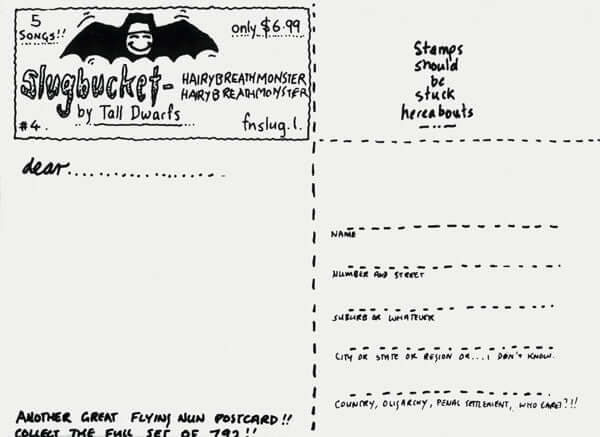 5
SONGS!!
only $6.99
Slugbucket- HAIRYBREATHMONSTER
HARYBREATHMONYSTER
by Tall Dwarfs
#4.
fnslug.1.
Stamps
should
be
stuck
hereabouts
dear....................
NAME
NUMBER AND STREET
SUBURB OR WHATEVER
CITY OR STATE OR REGION OR...I DON'T KNOW.
COUNTRY, OLIGARCHY, PENAL SETTLEMENT, WHO CARES?!!
ANOTHER GREAT FLYING NUN POSTCARD!!
COLLECT THE FULL SET OF 792!!